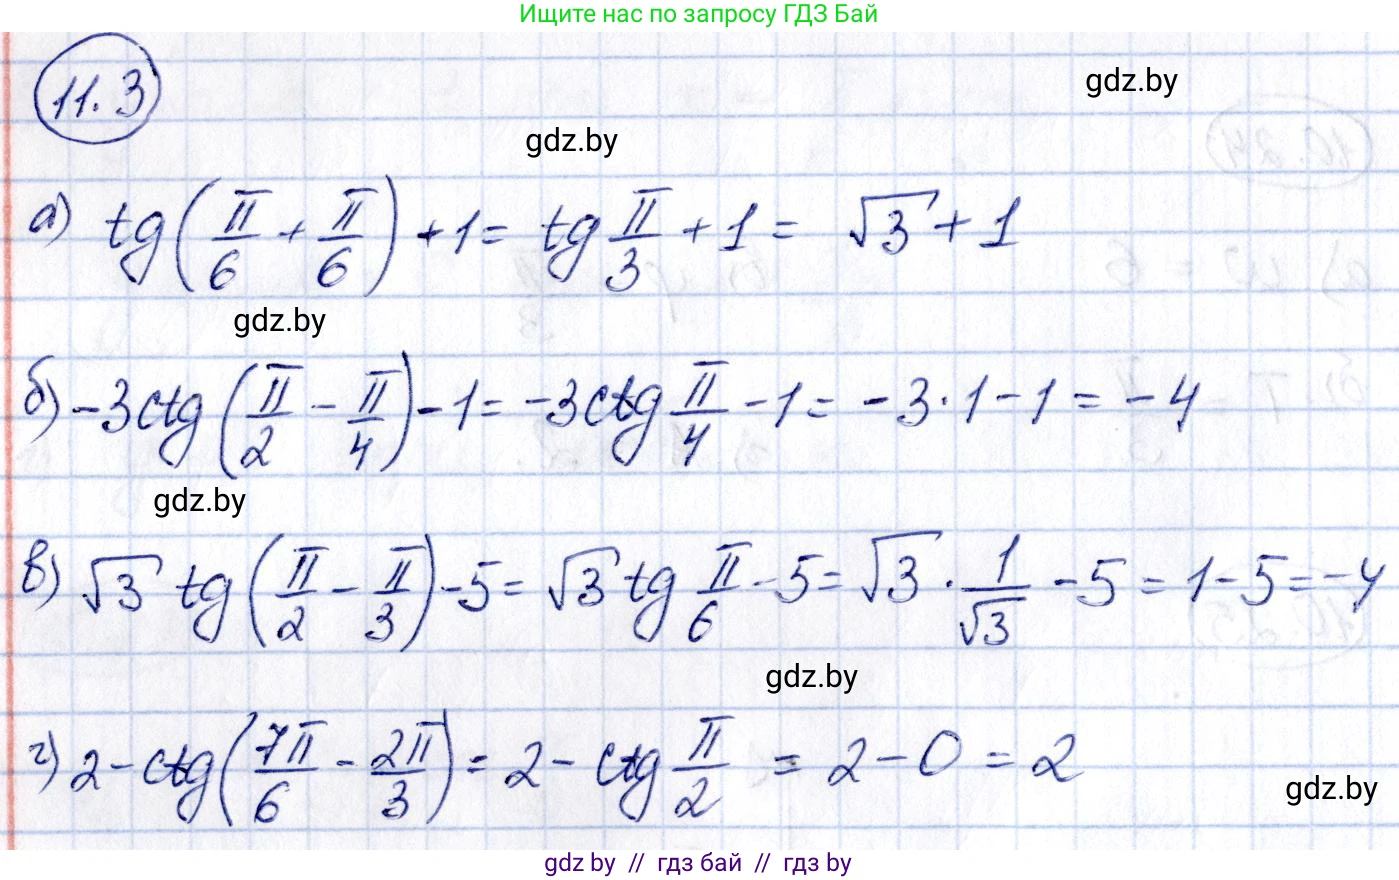 Ищите нас по запросу ГДЗ Бай
11.3
gdz.by
gdz.by
а) tg(π/6 + π/6) + 1 = tg π/3 + 1 = √3 + 1
gdz.by
б) -3ctg(π/2 - π/4) - 1 = -3ctg π/4 - 1 = -3·1 - 1 = -4
gdz.by
в) √3 tg(π/2 - π/3) - 5 = √3 tg π/6 - 5 = √3 · 1/√3 - 5 = 1 - 5 = -4
gdz.by
г) 2 - ctg(7π/6 - 2π/3) = 2 - ctg π/2 = 2 - 0 = 2
gdz.by
gdz by // гдз бай // гдз by